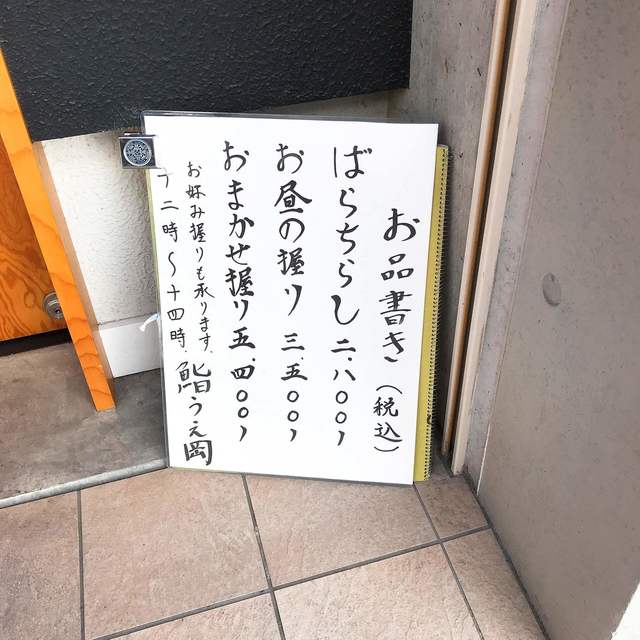 お品書き（税込）
ばらちらし 二、八〇〇、
お昼の握り 三、五〇〇、
おまかせ握り 五、四〇〇、
お好み握りも承ります、
十二時〜十四時、 鮨うえ岡